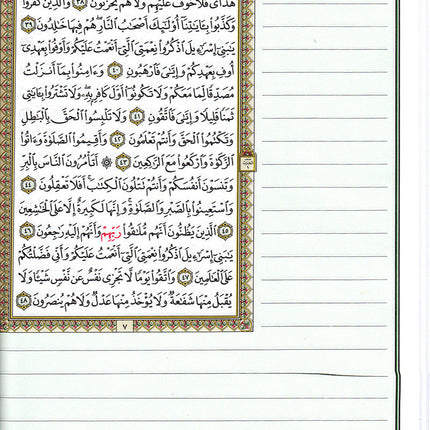 هُدَايَ فَلَا خَوْفٌ عَلَيْهِمْ وَلَا هُمْ يَحْزَنُونَ ٣٨ وَالَّذِينَ كَفَرُوا
وَكَذَّبُوا بِـَٔايَـٰتِنَآ أُولَـٰٓئِكَ أَصْحَـٰبُ النَّارِ هُمْ فِيهَا خَـٰلِدُونَ ٣٩
يَـٰبَنِىٓ إِسْرَٰٓءِيلَ اذْكُرُوا نِعْمَتِىَ الَّتِىٓ أَنْعَمْتُ عَلَيْكُمْ وَأَوْفُوا بِعَهْدِىٓ
أُوفِ بِعَهْدِكُمْ وَإِيَّـٰىَ فَارْهَبُونِ ٤٠ وَءَامِنُوا بِمَآ أَنزَلْتُ
مُصَدِّقًا لِّمَا مَعَكُمْ وَلَا تَكُونُوٓا أَوَّلَ كَافِرٍۭ بِهِۦ وَلَا تَشْتَرُوا بِـَٔايَـٰتِى
ثَمَنًا قَلِيلًا وَإِيَّـٰىَ فَاتَّقُونِ ٤١ وَلَا تَلْبِسُوا الْحَقَّ بِالْبَـٰطِلِ
وَتَكْتُمُوا الْحَقَّ وَأَنتُمْ تَعْلَمُونَ ٤٢ وَأَقِيمُوا الصَّلَوٰةَ وَءَاتُوا
الزَّكَوٰةَ وَارْكَعُوا مَعَ الرَّٰكِعِينَ ٤٣ ۞ أَتَأْمُرُونَ النَّاسَ بِالْبِرِّ
وَتَنسَوْنَ أَنفُسَكُمْ وَأَنتُمْ تَتْلُونَ الْكِتَـٰبَ ۚ أَفَلَا تَعْقِلُونَ ٤٤
وَاسْتَعِينُوا بِالصَّبْرِ وَالصَّلَوٰةِ ۚ وَإِنَّهَا لَكَبِيرَةٌ إِلَّا عَلَى الْخَـٰشِعِينَ
٤٥ الَّذِينَ يَظُنُّونَ أَنَّهُم مُّلَـٰقُوا رَبِّهِمْ وَأَنَّهُمْ إِلَيْهِ رَٰجِعُونَ ٤٦
يَـٰبَنِىٓ إِسْرَٰٓءِيلَ اذْكُرُوا نِعْمَتِىَ الَّتِىٓ أَنْعَمْتُ عَلَيْكُمْ وَأَنِّى فَضَّلْتُكُمْ
عَلَى الْعَـٰلَمِينَ ٤٧ وَاتَّقُوا يَوْمًا لَّا تَجْزِى نَفْسٌ عَن نَّفْسٍ شَيْـًٔا وَلَا
يُقْبَلُ مِنْهَا شَفَـٰعَةٌ وَلَا يُؤْخَذُ مِنْهَا عَدْلٌ وَلَا هُمْ يُنصَرُونَ ٤٨
٧